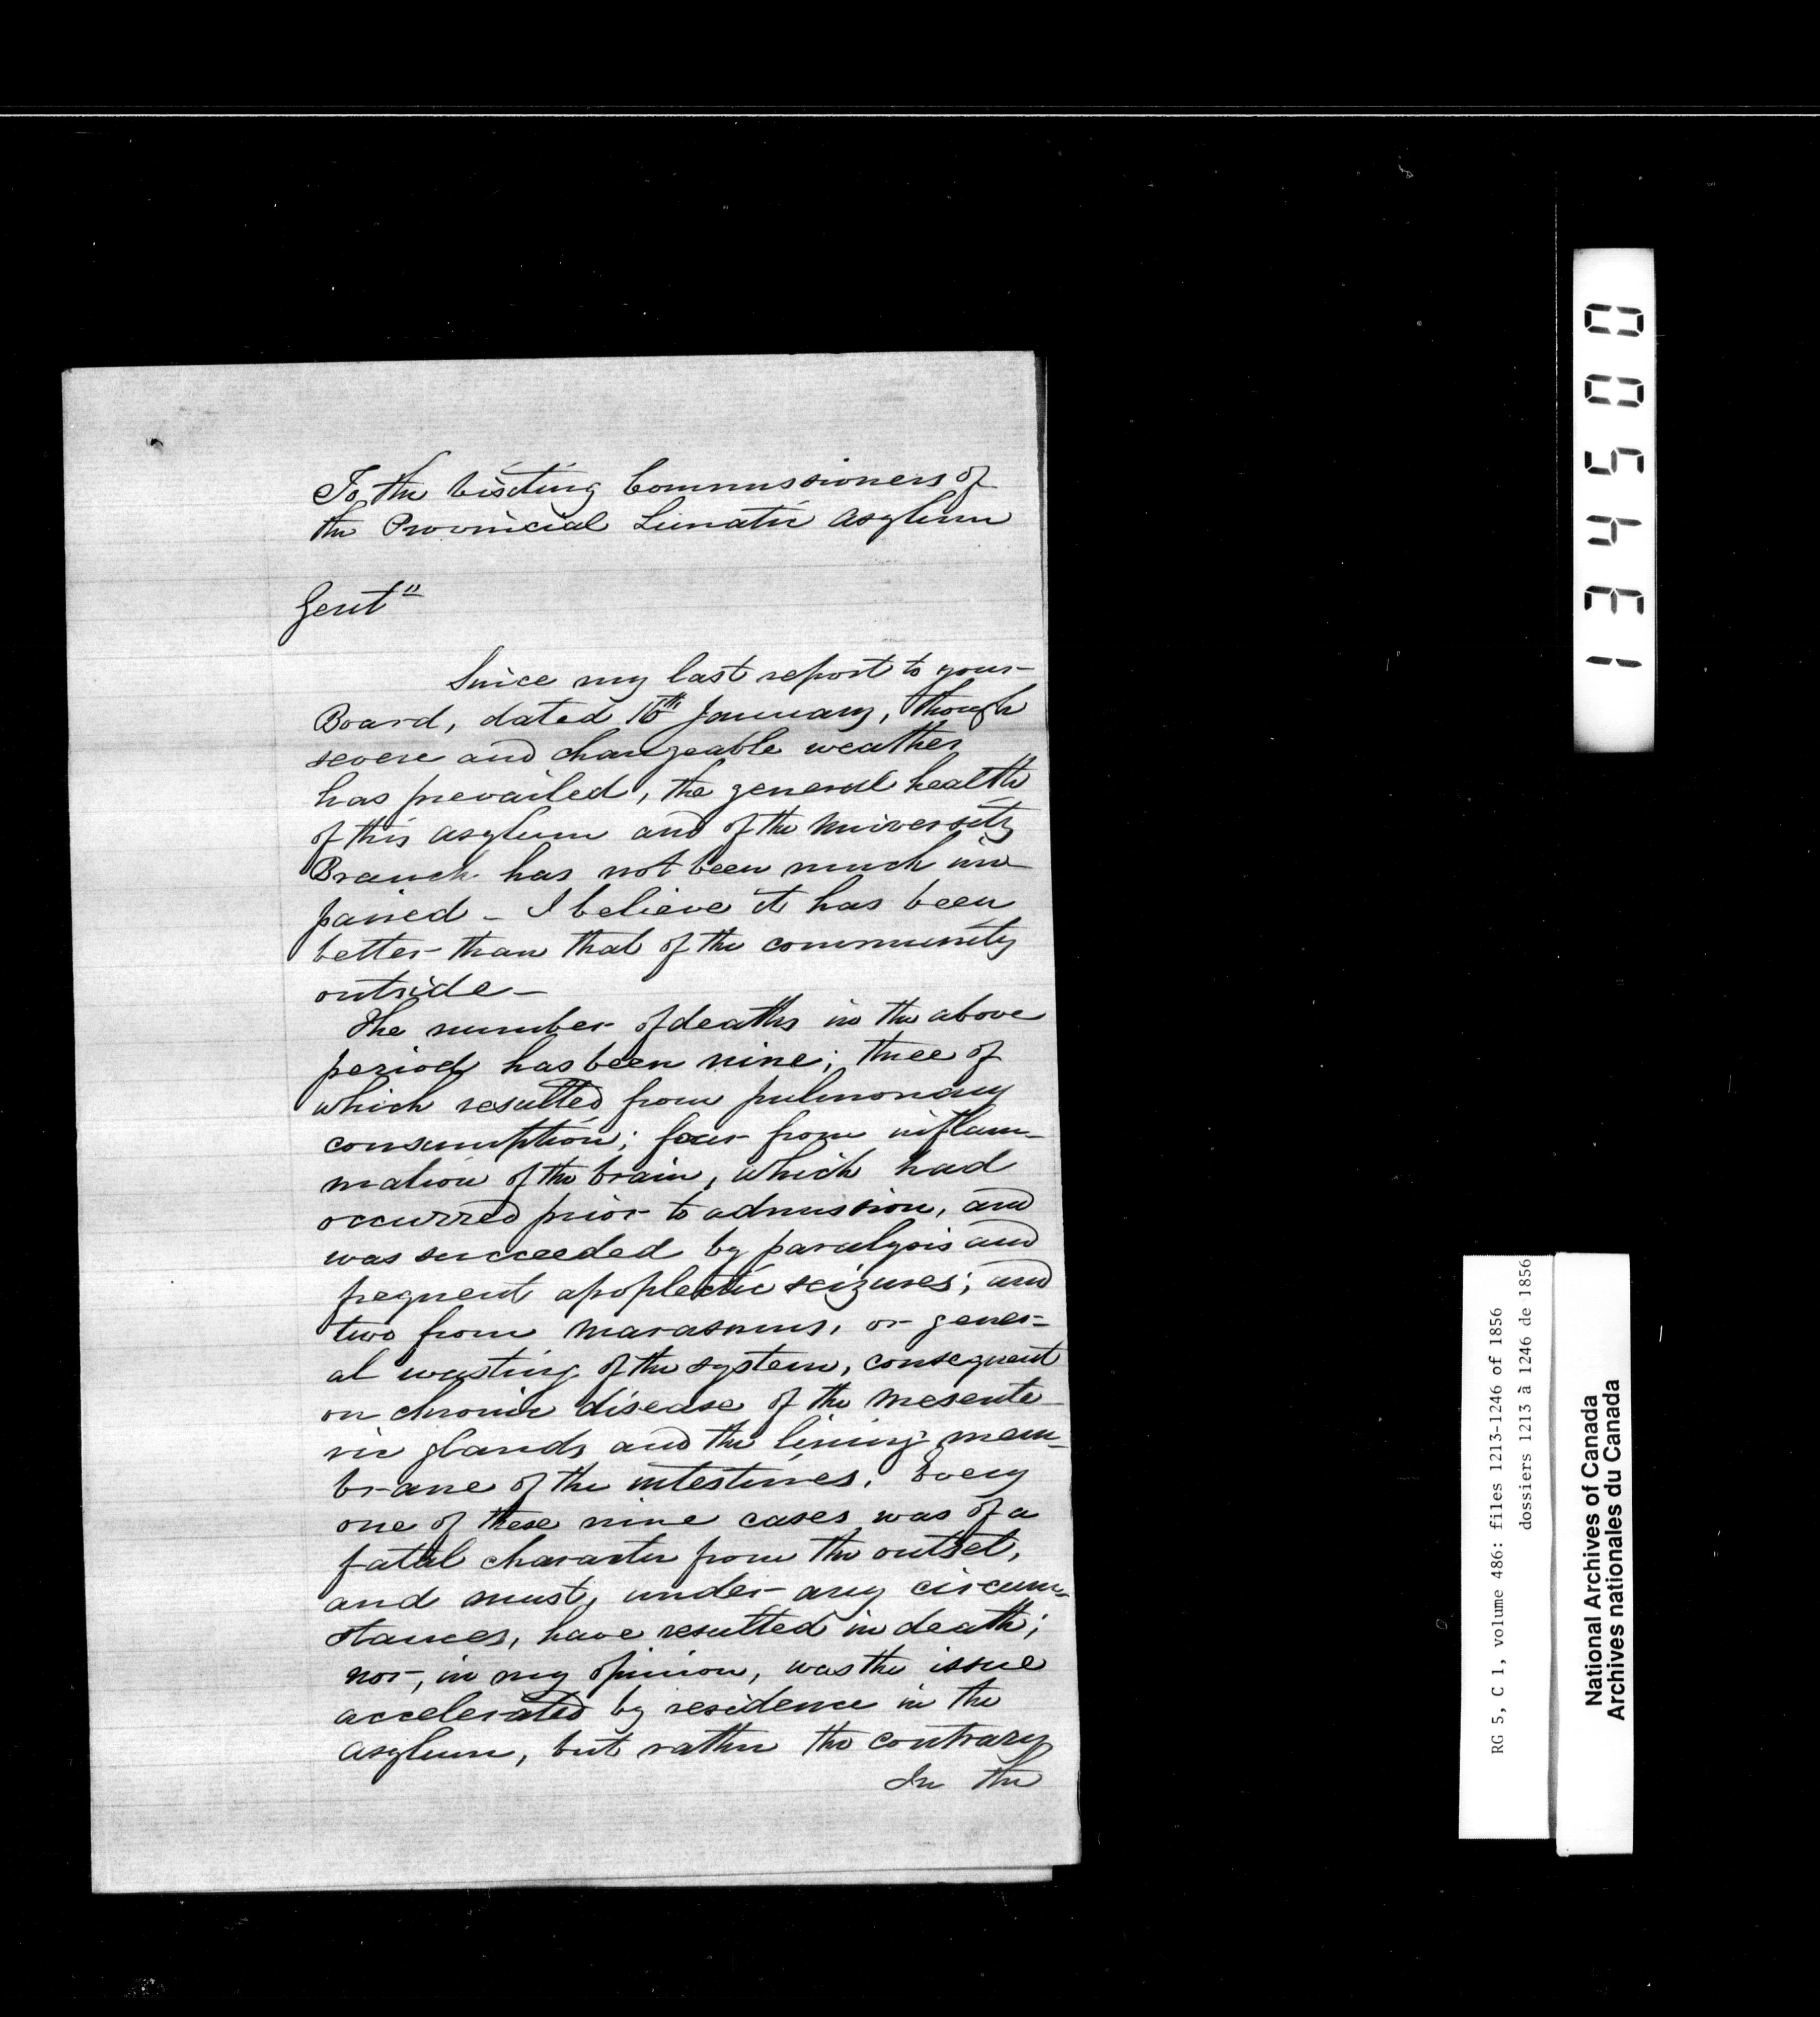 To the Visiting Commissioners of
the Provincial Lunatic Asylum
Gentⁿ
Since my last report to your
Board, dated 16th January, though
severe and changeable weather
has prevailed, the general health
of this asylum and of the University
Branch has not been much im-
paired - I believe it has been
better than that of the community
outside -
The number of deaths in the above
period has been nine; three of
which resulted from pulmonary
consumption; four from inflam-
mation of the brain, which had
occurred prior to admission, and
was succeeded by paralysis and
frequent apoplectic seizures; and
two from marasmus, or gener=
al wasting of the system, consequent
on chronic disease of the mesente-
ric glands and the lining mem-
brane of the intestines. Every
one of these nine cases was of a
fatal character from the outset,
and must, under any circum=
stances, have resulted in death;
nor, in my opinion, was the issue
accelerated by residence in the
asylum, but rather the contrary
In the
134500
RG 5, C 1, volume 486: files 1213-1246 of 1856
dossiers 1213 à 1246 de 1856
National Archives of Canada
Archives nationales du Canada